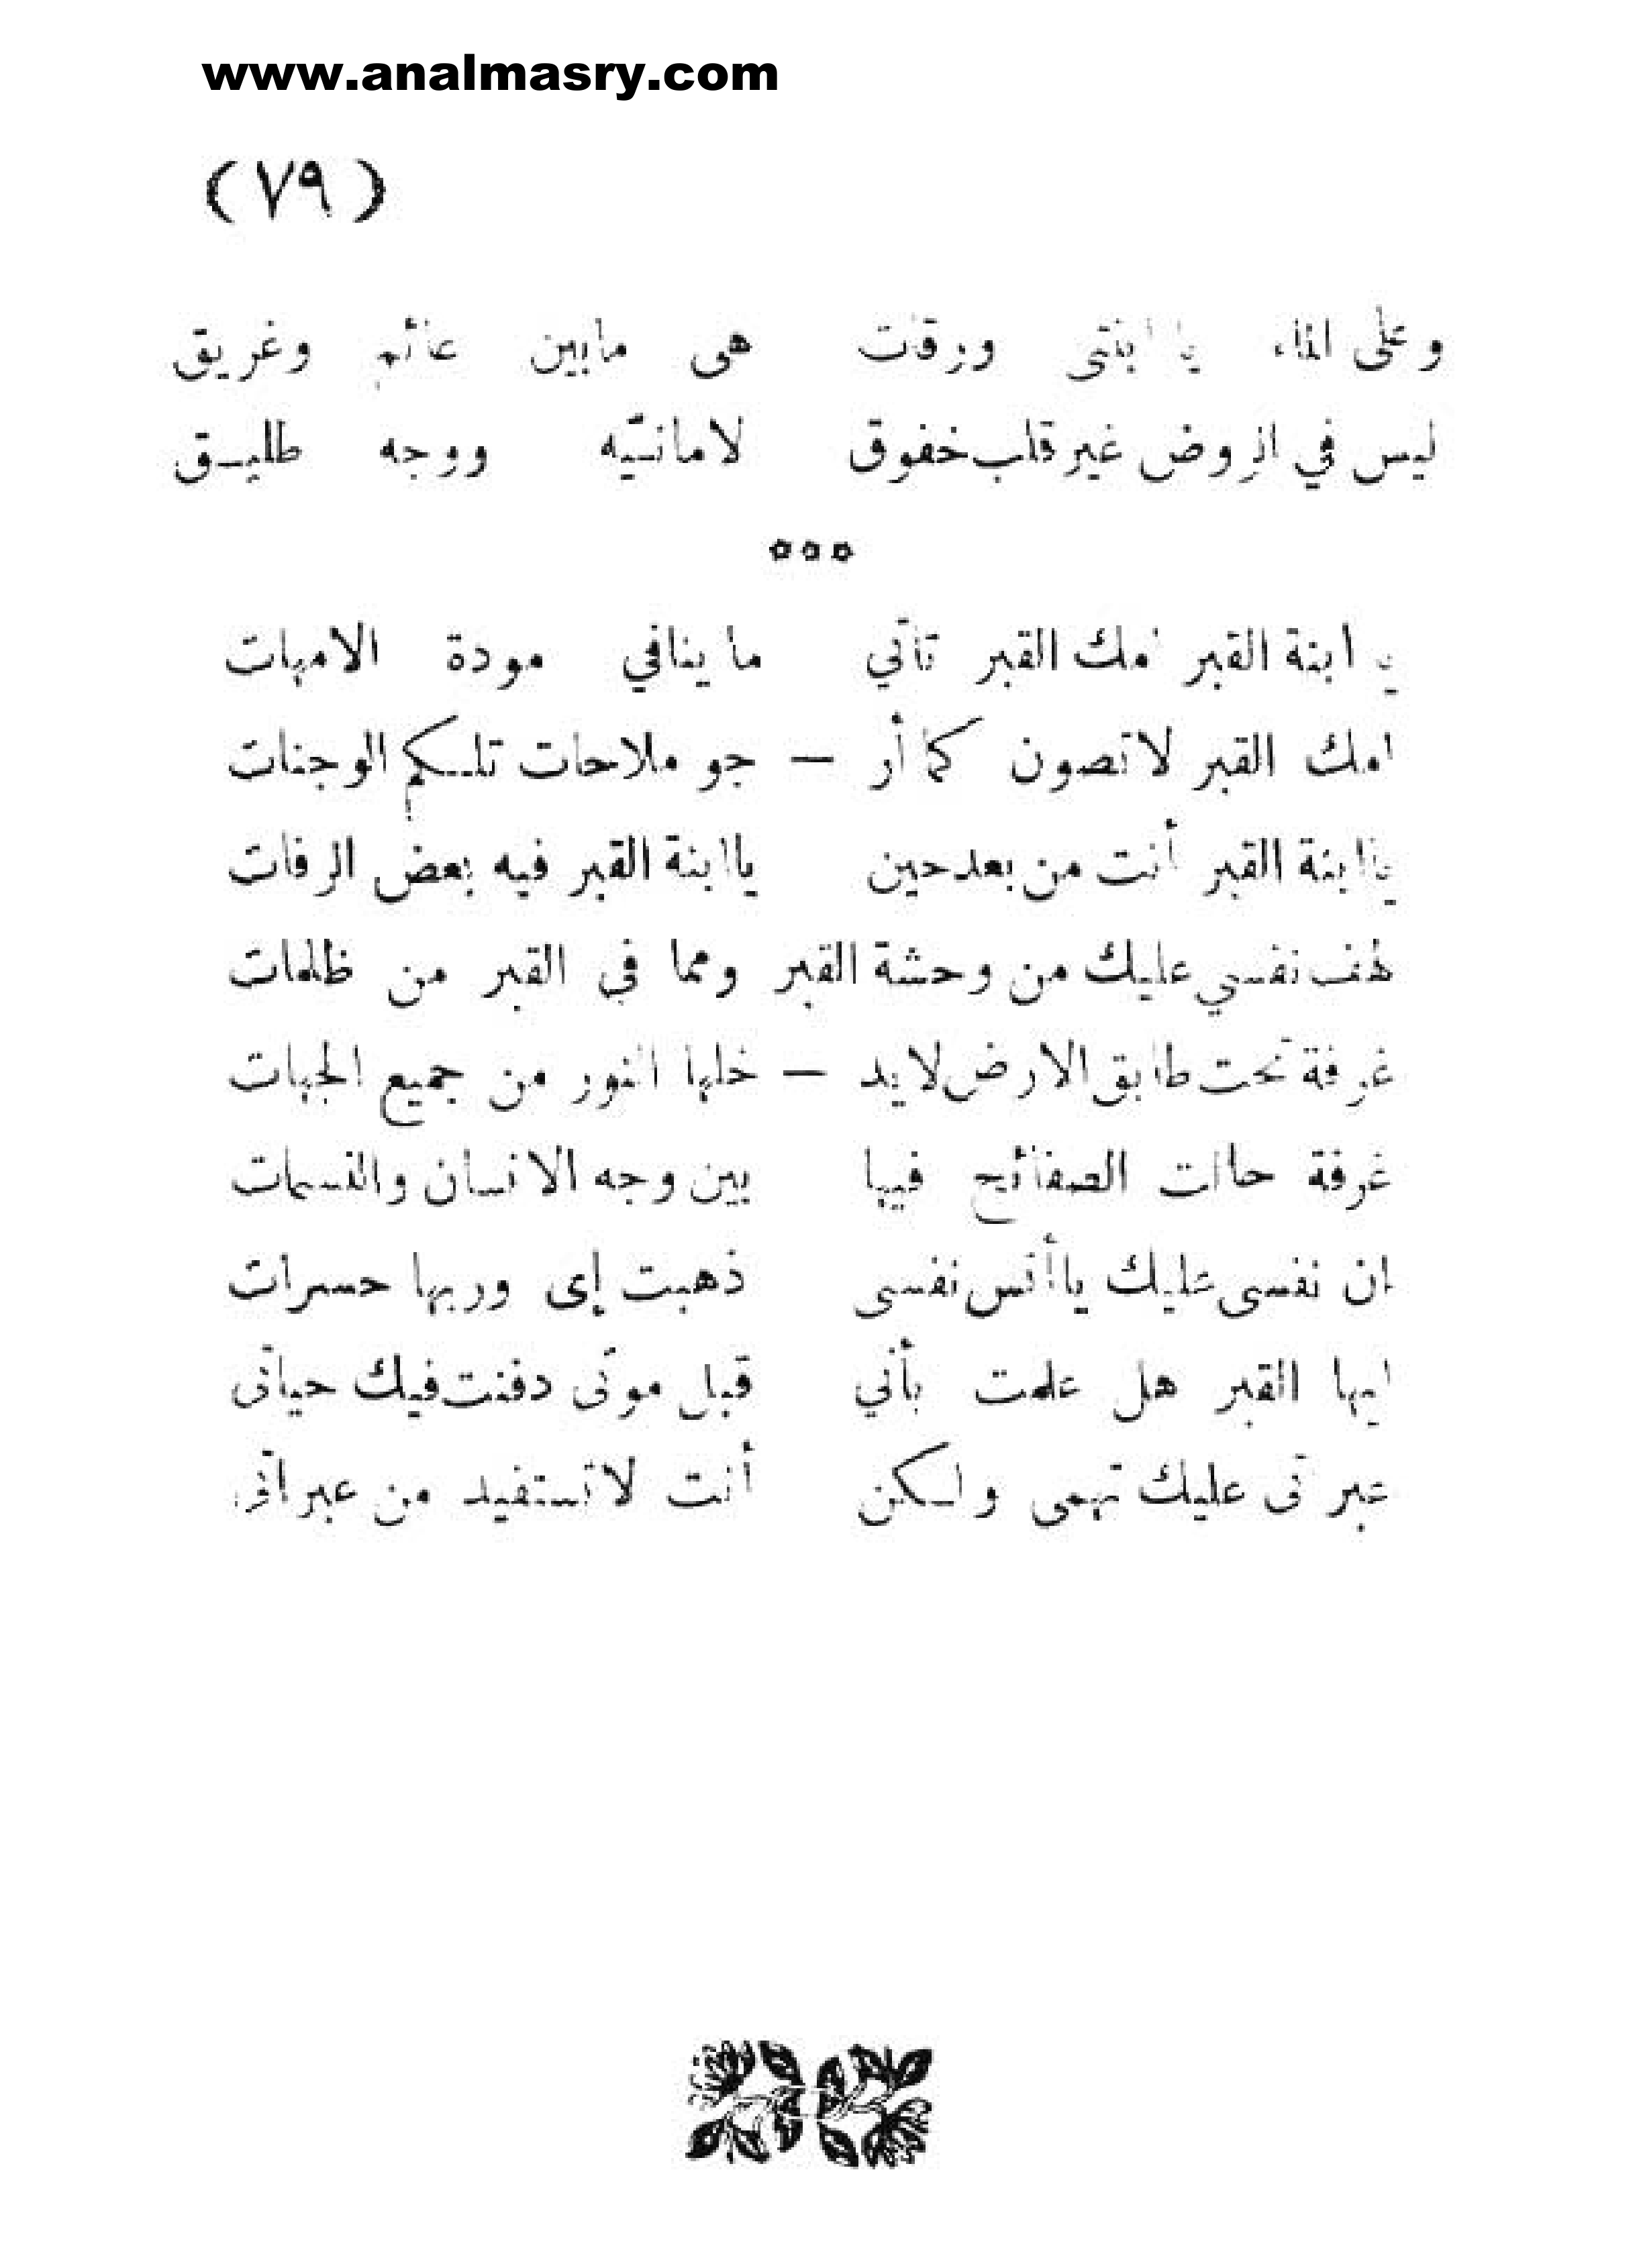 www.analmasry.com
(٧٩)
وعلى الماء يا ابنتى ورقات هى مابين عائم وغريق
ليس في الروض غير قلب خفوق لامانيّه ووجه طليــق
٥٥٥
يا ابنة القبر امك القبر تأتي ما ينافي مودة الامهات
امك القبر لاتصون كما أر — جو ملاحات تلـكم الوجنات
ياابنة القبر أنت من بعد حين ياابنة القبر فيه بعض الرفات
لهف نفسي عليك من وحشة القبر ومما في القبر من ظلمات
غرفة تحت طابق الارض لا يد — خلها النور من جميع الجهات
غرفة حالت الصفائح فيها بين وجه الانسان والنسمات
ان نفسى عليك ياأنس نفسى ذهبت إى وربها حسرات
ايها القبر هل علمت بأني قبل موتى دفنت فيك حياتى
عبرتى عليك تهمى ولـكن أنت لاتستفيد من عبراتى